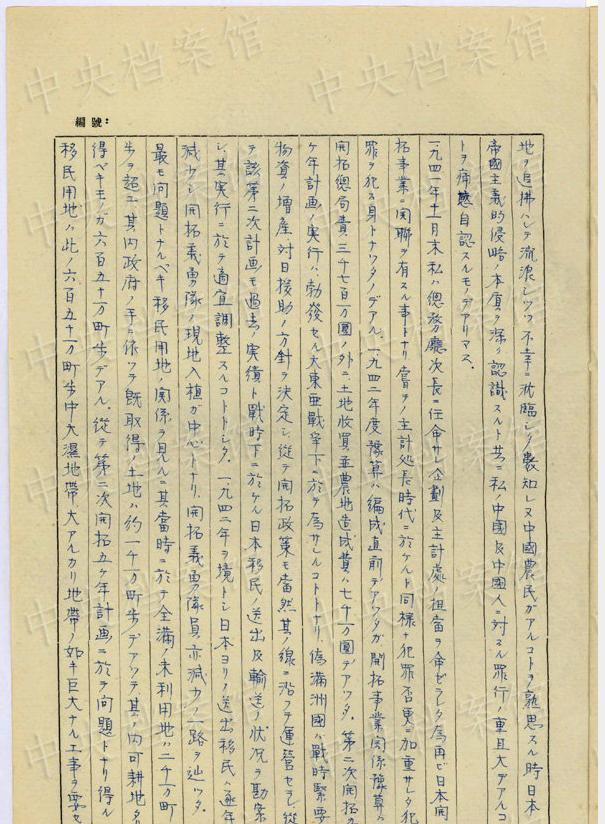 中央档案馆
編號：
地ヲ追拂ハレテ流浪シツツ不幸ニ沈臨シタ數知レヌ中國農民ガアルコトヲ熟思スル時日本
帝國主義的侵略ノ本質ヲ深ク認識スルト共ニ私ノ中國及中國人ニ対スル罪行ノ重且大デアルコ
トヲ痛感自認スルモノデアリマス．
一九四一年十一月末私ハ總務廳次長ニ任命サレ企劃及主計處ノ担當ヲ命ゼラレタ為再ビ日本開
拓事業ニ関聯ヲ有スル事トナリ嘗テノ主計処長時代ニ於ケルト同様ナ犯罪否更ニ加重サレタ犯
罪ヲ犯ス身トナツタノデアル．一九四二年度豫算ハ編成直前デアツタガ開拓事業関係豫算ハ
開拓總局費三千七百万圓ノ外ニ土地收買並農地造成費ハ七千万圓デアツタ．第二次開拓五
ケ年計画ノ実行ハ勃發セル大東亜戰爭下ニ於テ為サレルコトトナリ、偽満洲國ハ戰時緊要
物資ノ増産対日援助ノ方針ヲ決定シ従テ開拓政策モ當然其ノ線ニ沿フテ運営セラレ従
テ該第二次計画モ過去ノ実績ト戰時下ニ於ケル日本移民ノ送出及輸送ノ状况ヲ勘案
シ其ノ実行ニ於テ適宜調整スルコトトシタ．一九四二年ヲ境トシ日本ヨリノ送出移民ハ逐年
減少シ開拓義勇隊ノ現地入植ガ中心トナリ、開拓義勇隊員亦減少ノ一路ヲ辿ツタ．
最モ問題トナルベキ移民用地ノ関係ヲ見ルニ其當時ニ於テ全満ノ未利用地ハ二千万町
歩ヲ超エ其内政府ノ手ニ依ツテ既取得ノ土地ハ約一千万町歩デアツテ其ノ内可耕地タ
得ベキモノガ六百五十万町歩デアル．従テ第二次開拓五ケ年計画ニ於テ問題トナリ得ル
移民用地ハ此ノ六百五十万町歩中大濕地帶大アルカリ地帶ノ如キ巨大ナル工事ヲ要セ